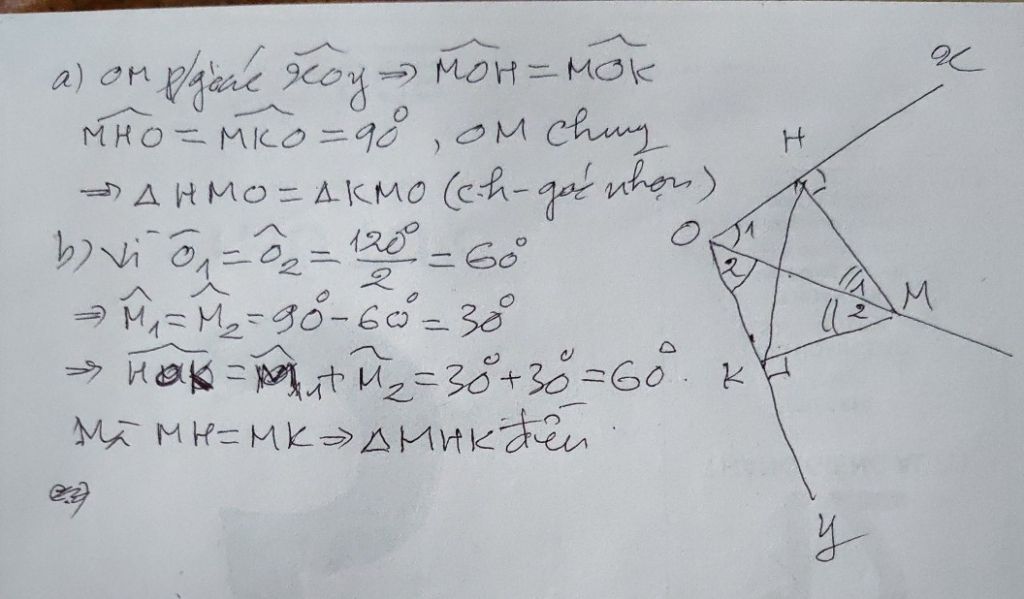 a) OM p/giác xOy ⇒ MOH = MOK
MHO = MKO = 90°, OM chung
⇒ Δ HMO = Δ KMO (c.h - góc nhọn)
b) Vì O1 = O2 = 120°/2 = 60°
⇒ M1 = M2 = 90° - 60° = 30°
⇒ = M1 + M2 = 30° + 30° = 60°.
Mà MH = MK ⇒ Δ MHK đều
x
H
O 1
2
1 M
2
K
y